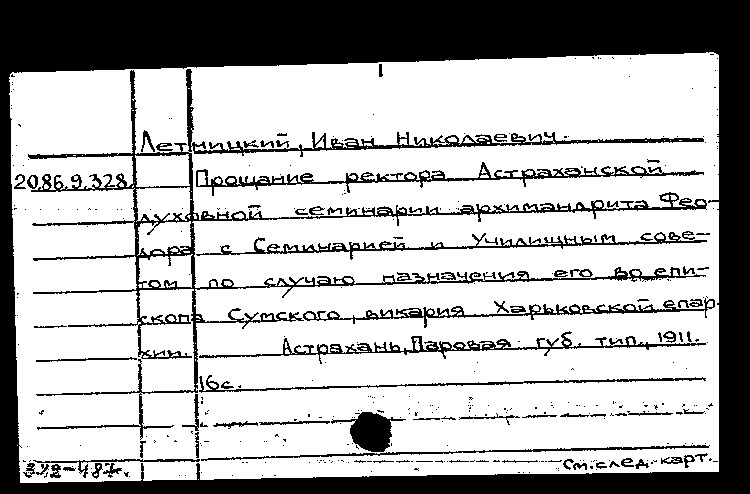 Летницкий, Иван Николаевич.
2086.9.328 Прощание ректора Астраханской
духовной семинарии архимандрита Фео-
дора с Семинарией и Училищным сове-
том по случаю назначения его во епи-
скопа Сумского, викария Харьковской епар-
хии. Астрахань, Паровая губ. тип., 1911.
16с.
См. след. карт.